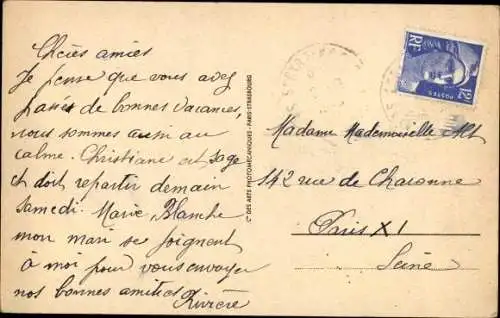 Chères amies
Je pense que vous avez
passé de bonnes vacances,
nous sommes aussi au
calme. Christiane est sage
et doit repartir demain
samedi. Marie Blanche
mon mari se joignent
à moi pour vous envoyer
nos bonnes amitiés
Rivière
Cie DES ARTS PHOTOMÉCANIQUES - PARIS-STRASBOURG
RF
POSTES
12F
Madame Mademoiselle
142 rue de Charonne
Paris XI
Seine